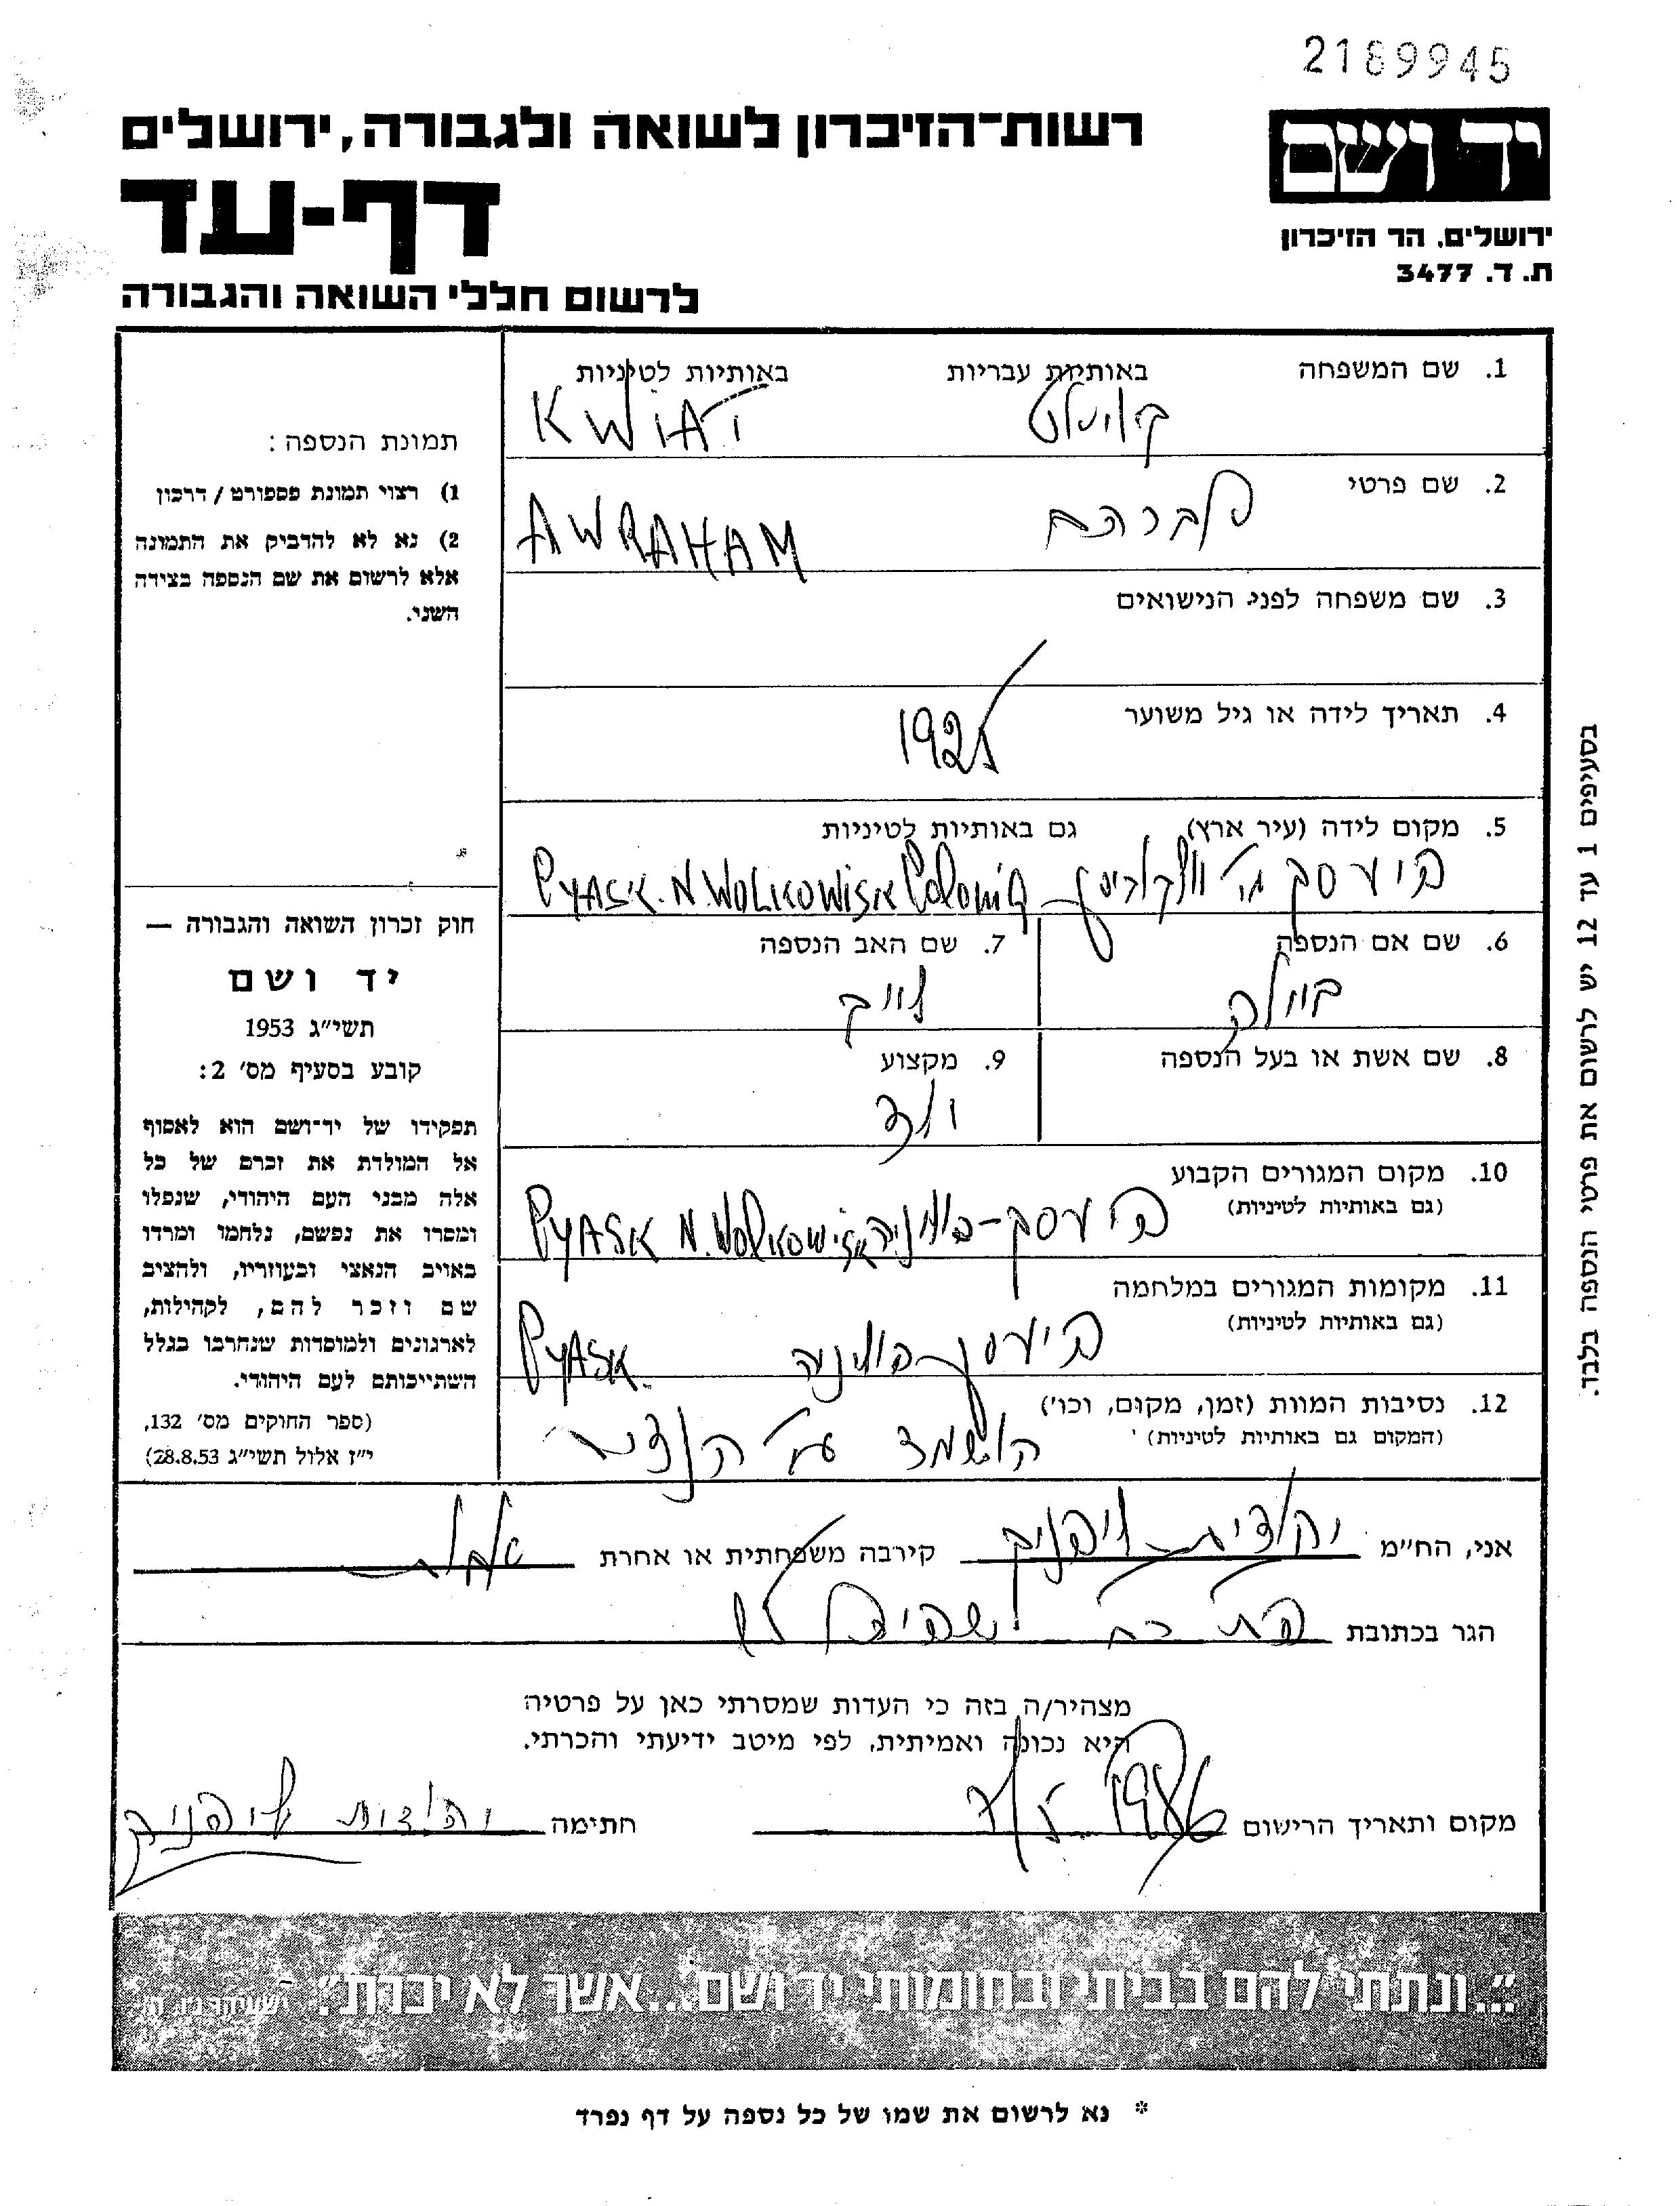 2189945
יד ושם
ירושלים. הר הזיכרון
ת. ד. 3477
רשות־הזיכרון לשואה ולגבורה, ירושלים
דף-עד
לרשום חללי השואה והגבורה
תמונת הנספה:
1) רצוי תמונת פספורט / דרכון
2) נא לא להדביק את התמונה
אלא לרשום את שם הנספה בצידה
השני.
חוק זכרון השואה והגבורה —
יד ושם
תשי״ג 1953
קובע בסעיף מס׳ 2:
תפקידו של יד־ושם הוא לאסוף
אל המולדת את זכרם של כל
אלה מבני העם היהודי, שנפלו
ומסרו את נפשם, נלחמו ומרדו
באויב הנאצי ובעוזריו, ולהציב
שם וזכר להם, לקהילות,
לארגונים ולמוסדות שנחרבו בגלל
השתייכותם לעם היהודי.
(ספר החוקים מס׳ 132,
י״ז אלול תשי״ג 28.8.53)
1. שם המשפחה באותיות עבריות באותיות לטיניות
קויאט KWIAT
2. שם פרטי
אברהם AWRAHAM
3. שם משפחה לפני הנישואים
4. תאריך לידה או גיל משוער
1925
5. מקום לידה (עיר ארץ) גם באותיות לטיניות
פיעסק PYASK. N. WOLKOWISK Polonia
6. שם אם הנספה 7. שם האב הנספה
ביילה
8. שם אשת או בעל הנספה 9. מקצוע
ילד
10. מקום המגורים הקבוע
(גם באותיות לטיניות)
פיעסק - פולניה PYASK N. Wolkowisk
11. מקומות המגורים במלחמה
(גם באותיות לטיניות)
פיעסק - פולניה PYASK.
12. נסיבות המוות (זמן, מקום, וכו׳)
(המקום גם באותיות לטיניות)
הושמד ע״י הנאצים
אני, הח״מ יהודית קירבה משפחתית או אחרת אחות
הגר בכתובת בת ים
מצהיר/ה בזה כי העדות שמסרתי כאן על פרטיה
היא נכונה ואמיתית, לפי מיטב ידיעתי והכרתי.
מקום ותאריך הרישום 1986 חתימה יהודית
״...ונתתי להם בביתי ובחומותי יד ושם...אשר לא יכרת״. ישעיהו נו, ה
* נא לרשום את שמו של כל נספה על דף נפרד
בסעיפים 1 עד 12 יש לרשום את פרטי הנספה בלבד.